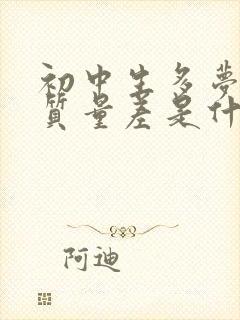 初中生多夢
質量差是什
阿迪